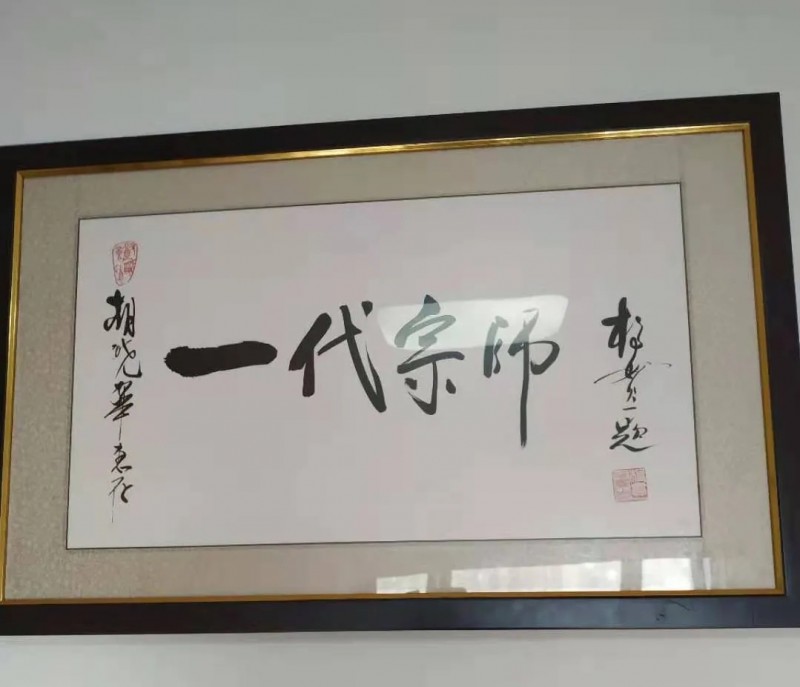 一代宗师
胡晓华惠存
题